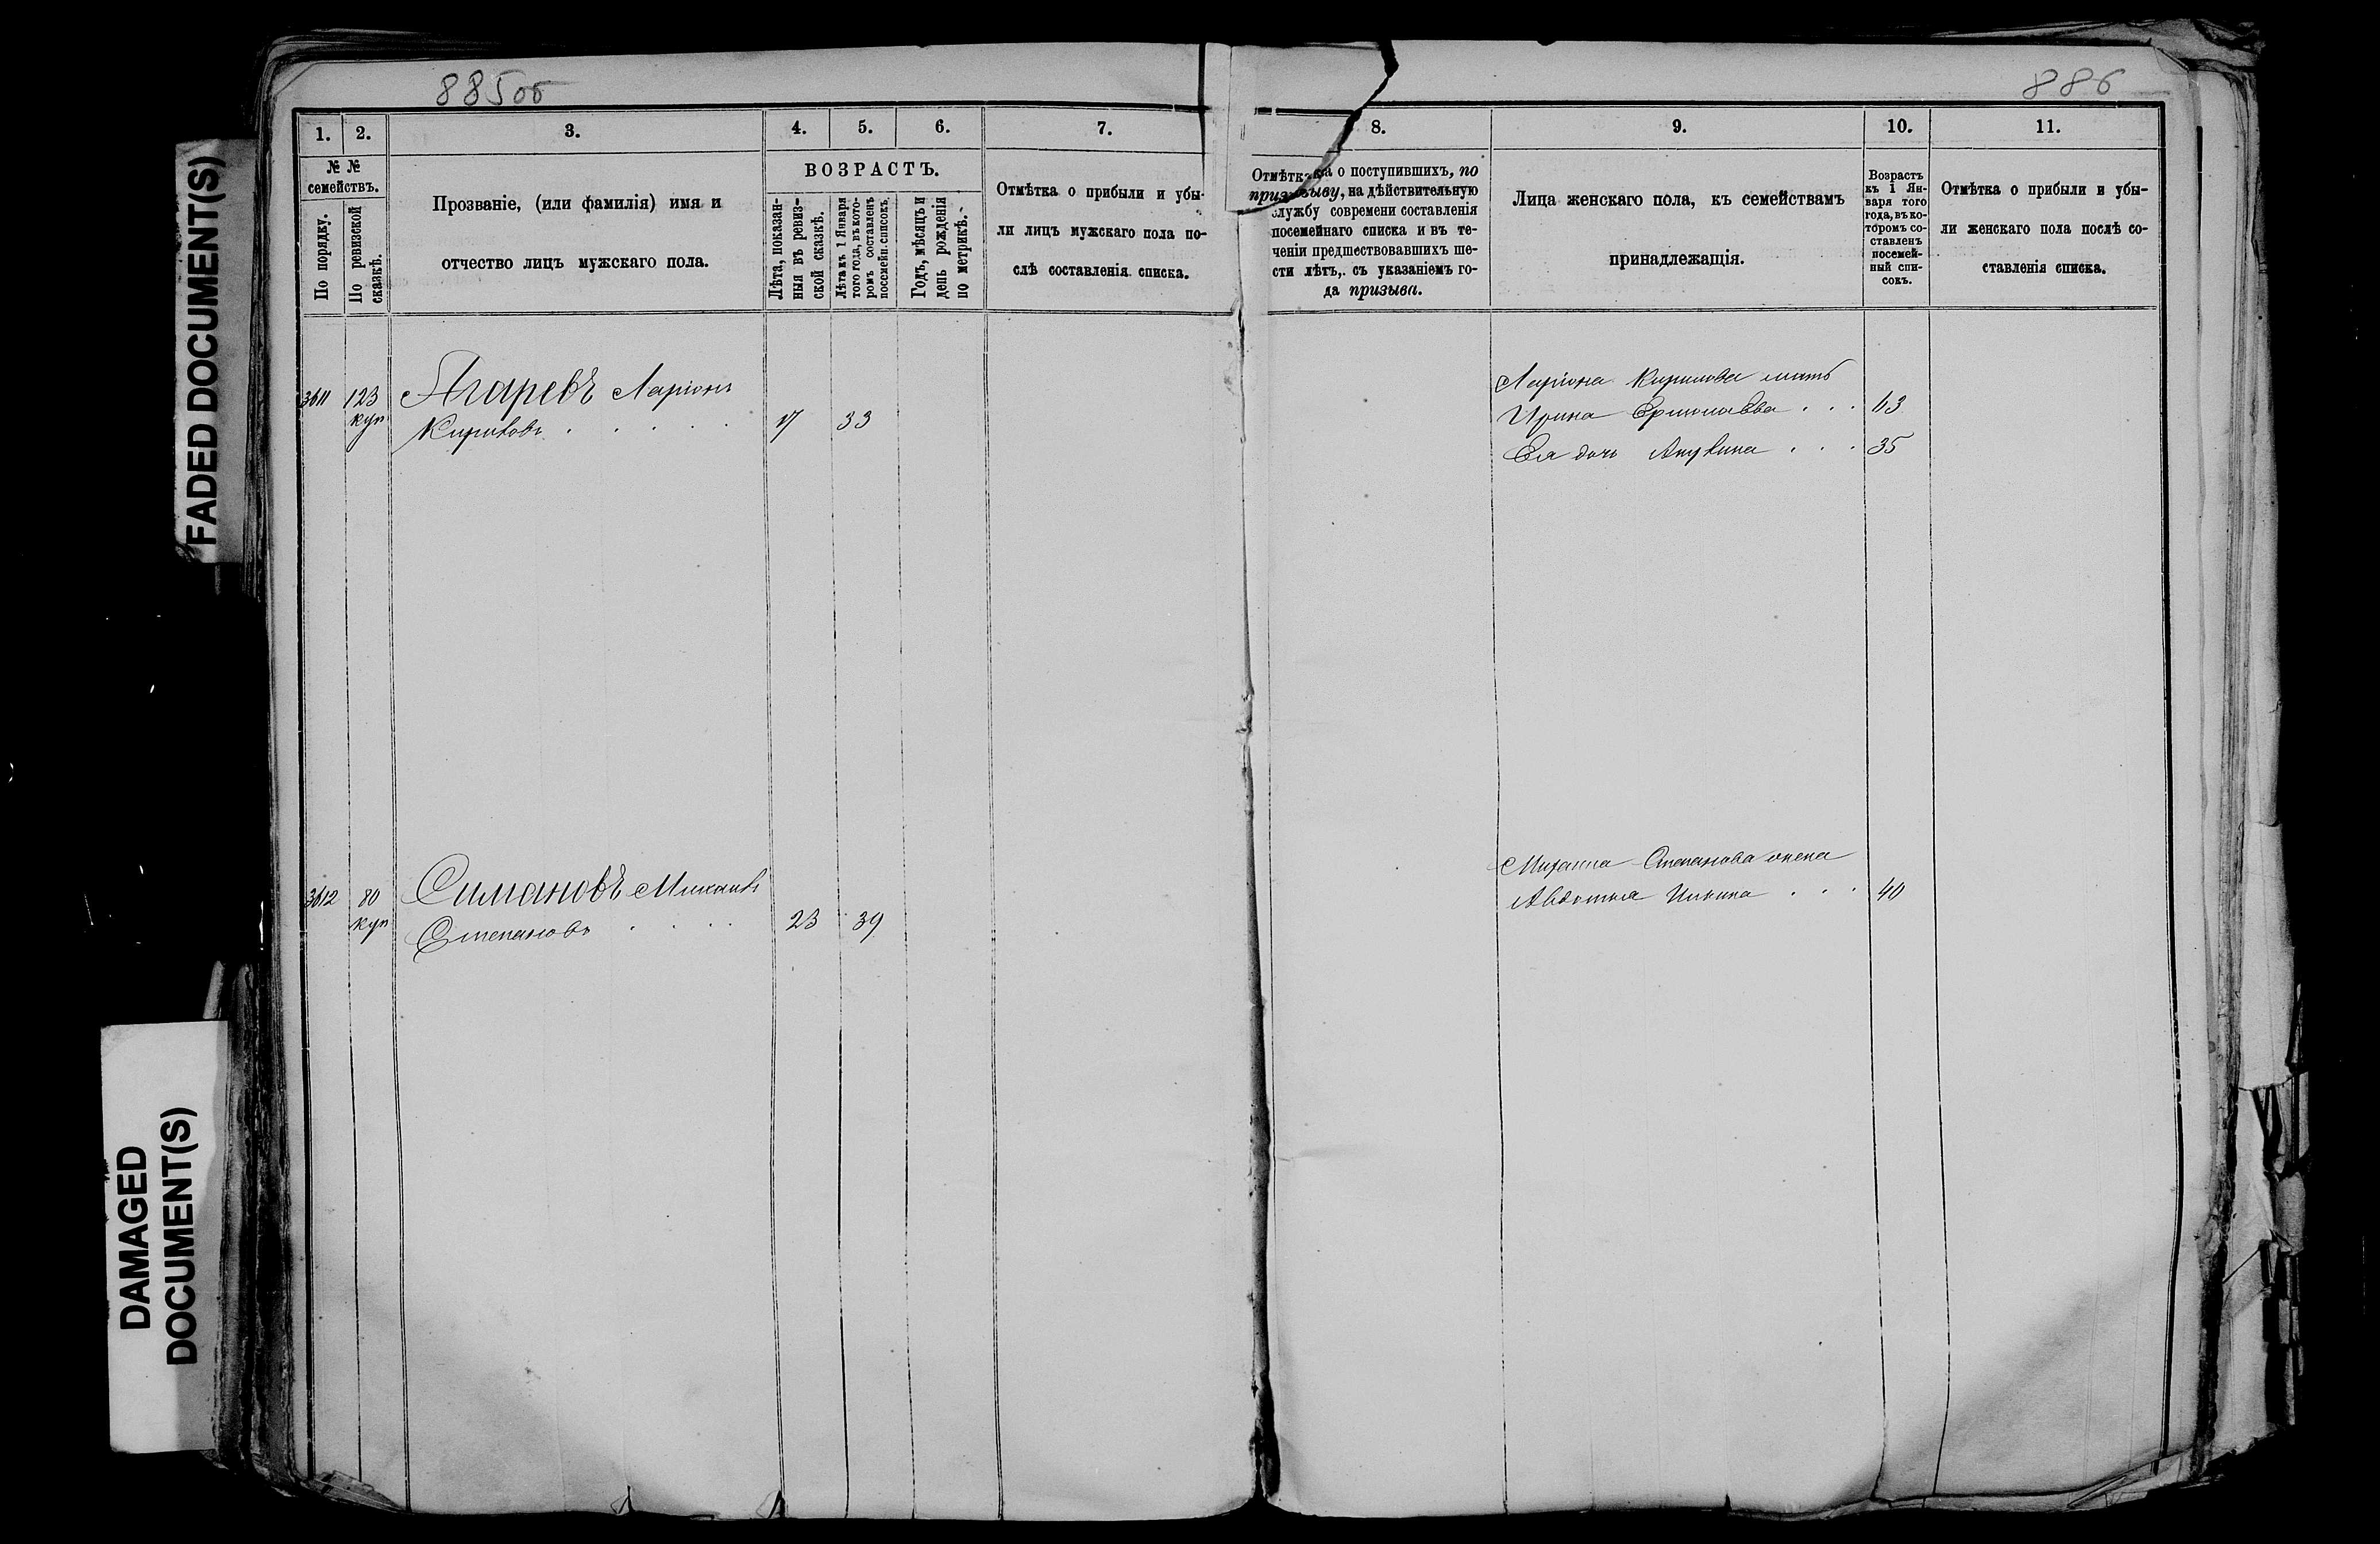 885об
886
FADED DOCUMENT(S)
DAMAGED
DOCUMENT(S)
1.
2.
3.
4.
5.
6.
7.
8.
9.
10.
11.
№ №
семействъ.
По порядку.
По ревизской
сказкѣ.
Прозваніе, (или фамилія) имя и
отчество лицъ мужскаго пола.
ВОЗРАСТЪ.
Лѣта, показан-
ныя въ ревиз-
ской сказкѣ.
Лѣта къ 1 Января
того года, въ кото-
ромъ составленъ
посемейн. списокъ.
Годъ, мѣсяцъ и
день рожденія
по метрикѣ.
Отмѣтка о прибыли и убы-
ли лицъ мужскаго пола по-
слѣ составленія списка.
Отмѣтка о поступившихъ, по
призыву, на дѣйствительную
службу современи составленія
посемейнаго списка и въ те-
ченіи предшествовавшихъ ше-
сти лѣтъ, съ указаніемъ го-
да призыва.
Лица женскаго пола, къ семействамъ
принадлежащія.
Возрастъ
къ 1 Ян-
варя того
года, въ ко-
торомъ со-
ставленъ
посемей-
ный спи-
сокъ.
Отмѣтка о прибыли и убы-
ли женскаго пола послѣ со-
ставленія списка.
3611 123 Агаревъ Ларіонъ
куп Кириловъ . . . . . 17 33
Ларіона Кирилова мать
Ирина Ермолаева . . . 63
Ея дочь Акулина . . . 35
3612 80 Симановъ Михаилъ
куп Степановъ . . . . 23 39
Михаила Степанова жена
Авдотья Ильина . . . 40